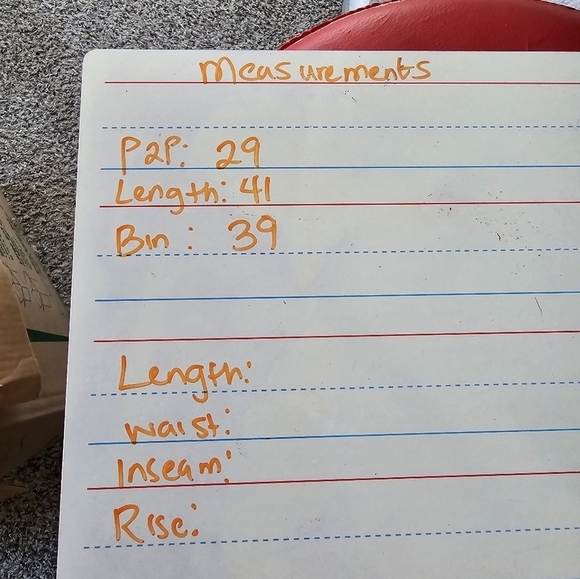 Measurements
P2P: 29
Length: 41
Bin: 39
Length:
Waist:
Inseam:
Rise: